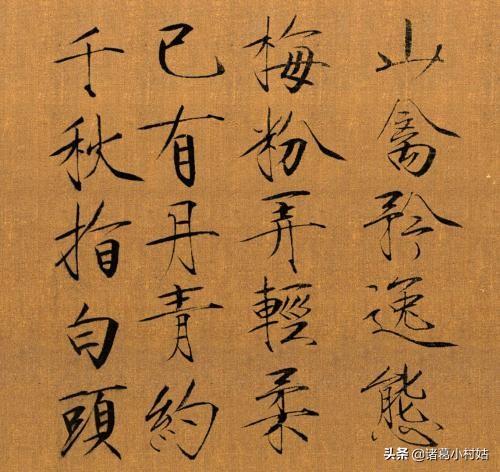 山禽矜逸態
梅粉弄輕柔
已有丹青約
千秋指白頭
头条@诸葛小村姑